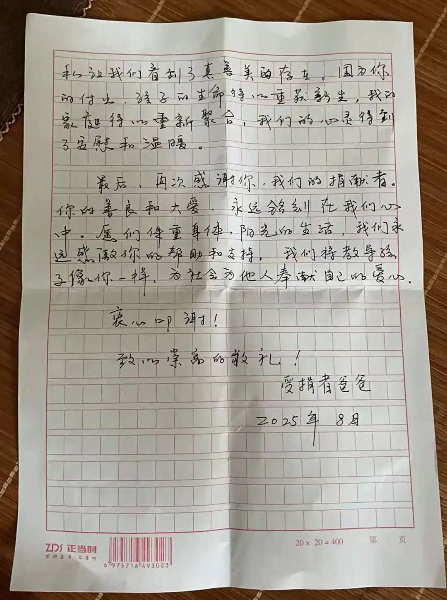 私让我们看到了真善美的存在。因为你
的付出，孩子的生命得以重获新生，我的
家庭得以重新聚合，我们的心灵得到
了安慰和温暖。
最后，再次感谢你，我们的捐献者。
你的善良和大爱 永远铭刻在我们心
中。愿你保重身体，阳光的生活，我们永
远感激你的帮助和支持。我们将教导孩
子像你一样，为社会为他人奉献自己的爱心.
衷心叩谢!
致以崇高的敬礼!
受捐者爸爸
2025年 8月
ZDS 正当时
6975716493023
20×20=400 第 页